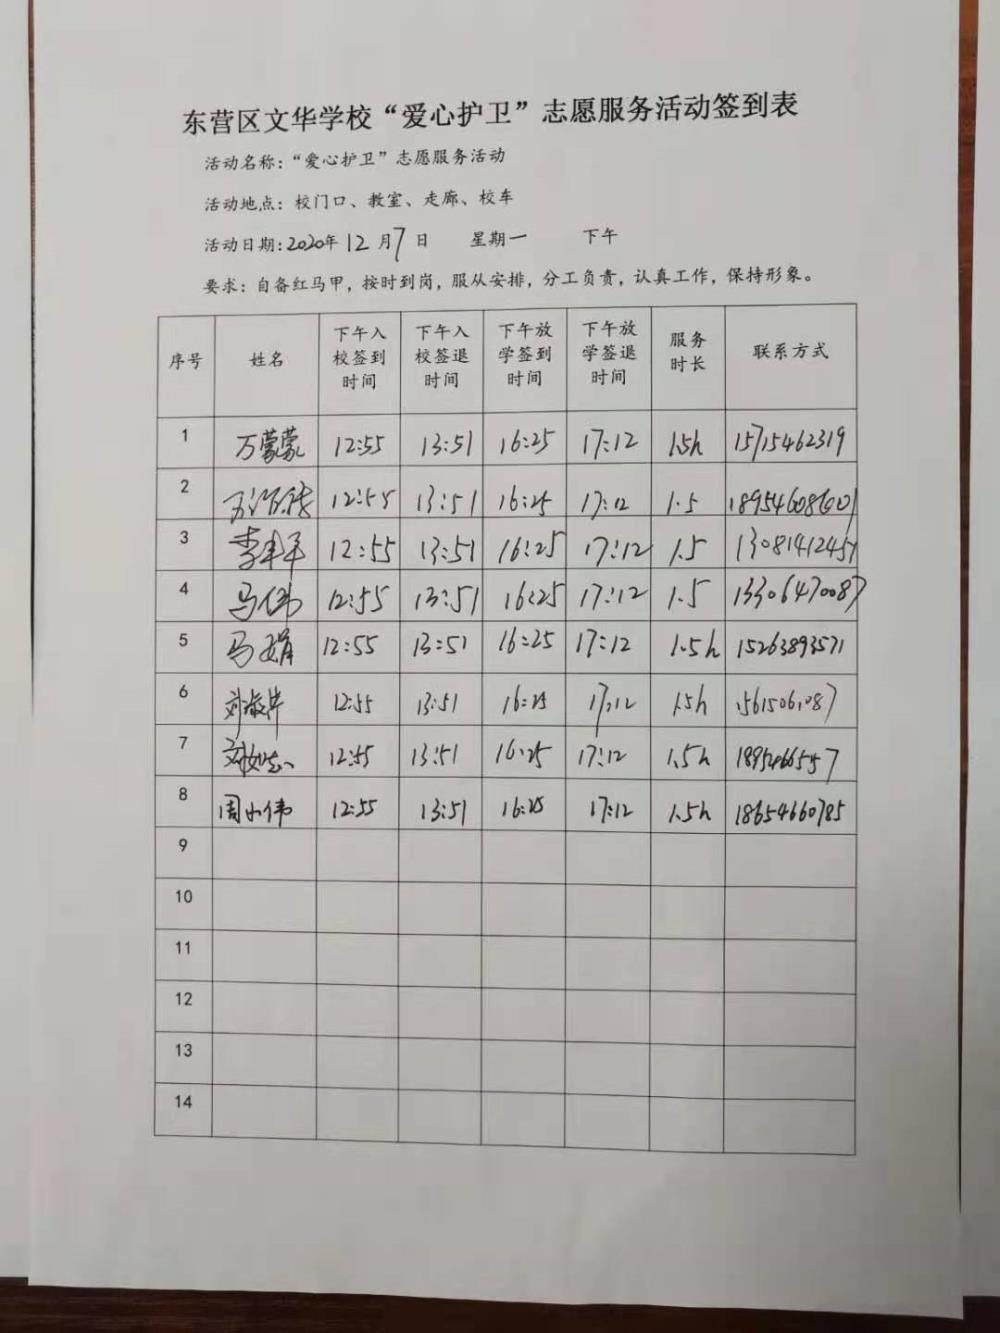 东营区文华学校“爱心护卫”志愿服务活动签到表
活动名称：“爱心护卫”志愿服务活动
活动地点：校门口、教室、走廊、校车
活动日期：2020年 12 月 7 日 星期一 下午
要求：自备红马甲，按时到岗，服从安排，分工负责，认真工作，保持形象。
序号 姓名 下午入校签到时间 下午入校签退时间 下午放学签到时间 下午放学签退时间 服务时长 联系方式
1 万蒙蒙 12:55 13:51 16:25 17:12 1.5h 15715462319
2 12:55 13:51 16:25 17:12 1.5
3 12:55 13:51 16:25 17:12 1.5
4 马伟 12:55 13:51 16:25 17:12 1.5 13306470087
5 马娟 12:55 13:51 16:25 17:12 1.5h 15263893571
6 12:55 13:51 16:25 17:12 1.5h
7 12:55 13:51 16:25 17:12 1.5h
8 周小伟 12:55 13:51 16:25 17:12 1.5h 18654660785
9
10
11
12
13
14